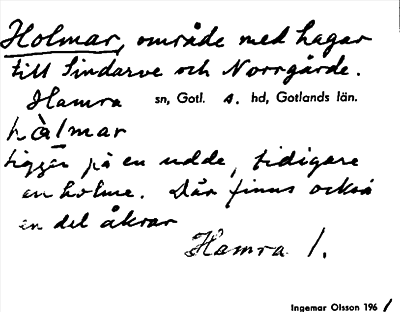 Holmar, område med hagar
till Sindarve och Norrgårde.
Hamra sn, Gotl. s. hd, Gotlands län.
hàlmar
Ligger på en udde, tidigare
en holme. Där finns också
en del åkrar
Hamra 1.
Ingemar Olsson 1961